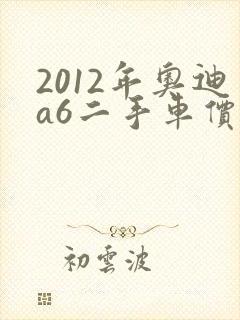 2012年奧迪
a6二手車價
初雲波